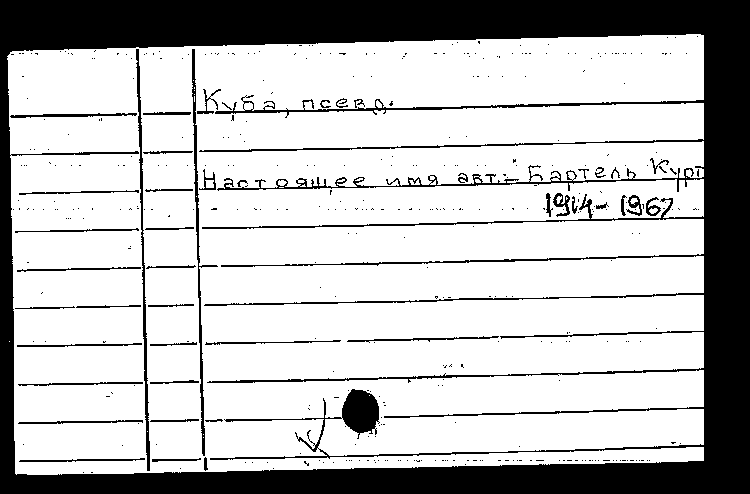 Куба, псевд.
Настоящее имя авт.- Бартель Курт
1914- 1967